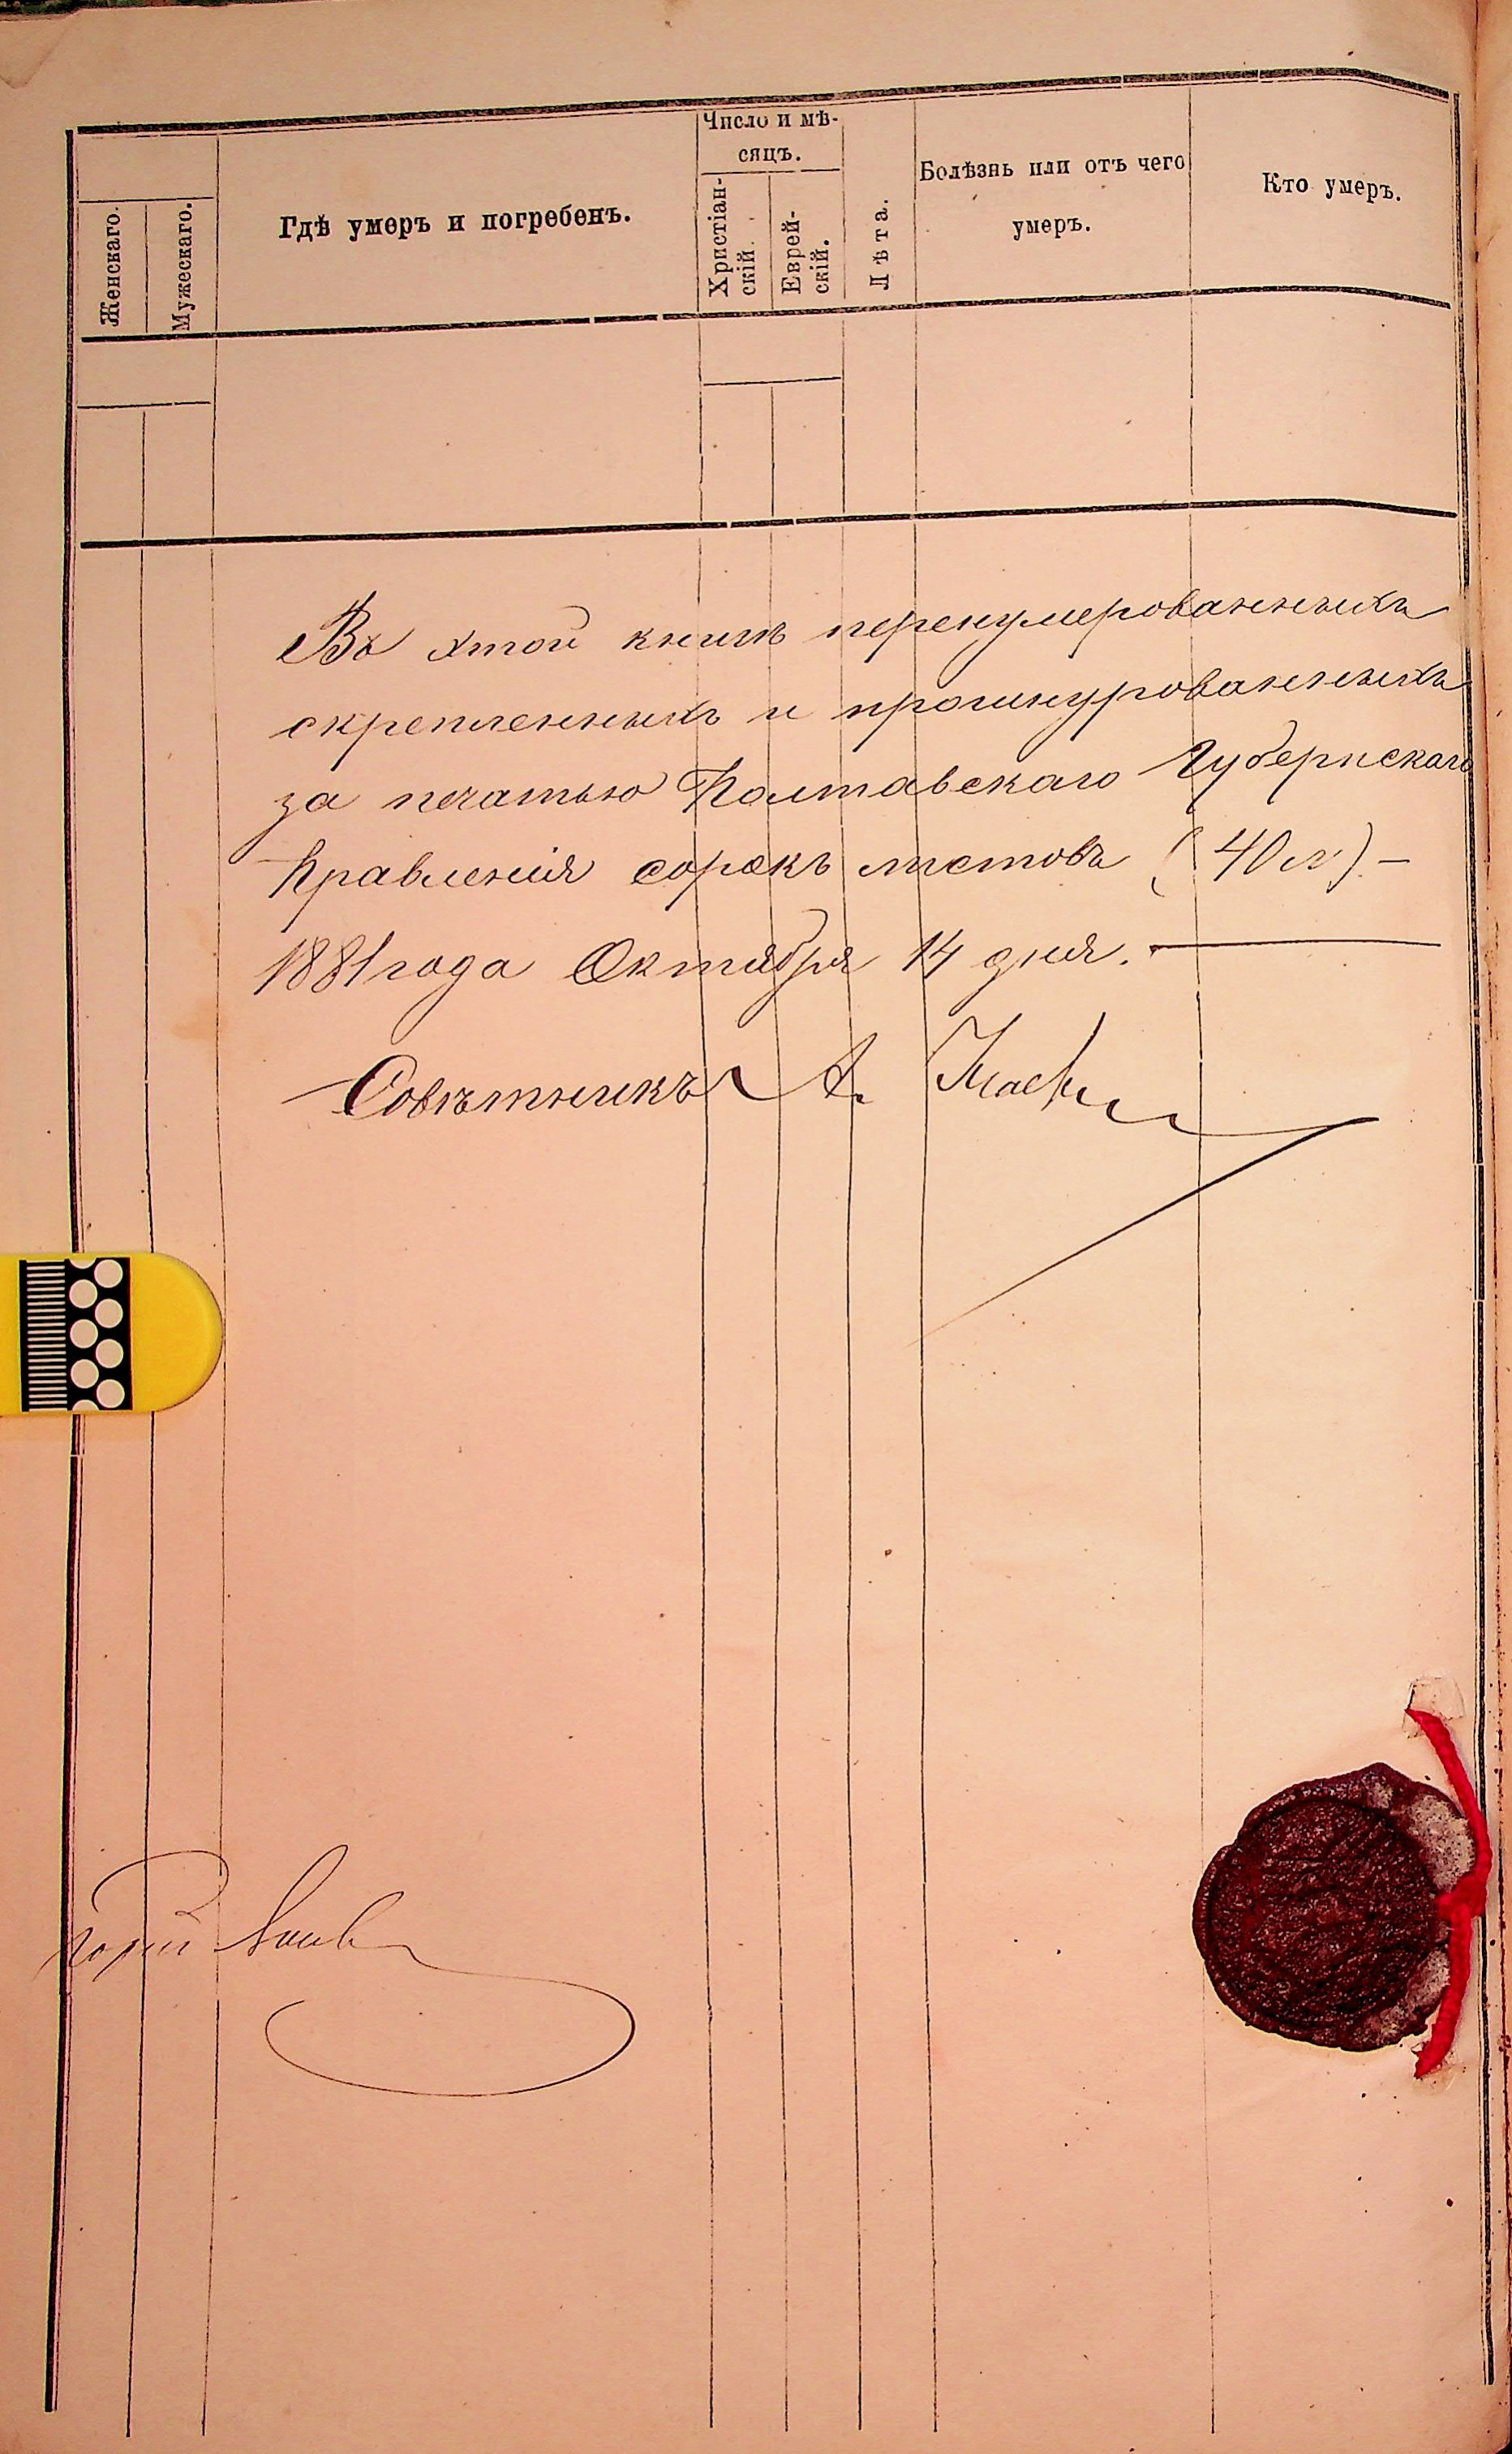 Женскаго.
Мужескаго.
Гдѣ умеръ и погребенъ.
Число и мѣ-
сяцъ.
Христіан-
скій.
Еврей-
скій.
Лѣта.
Болѣзнь или отъ чего
умеръ.
Кто умеръ.
Въ этой книгѣ перенумерованныхъ
скрепленныхъ и прошнурованныхъ
за печатью Полтавскаго Губернскаго
Правленія сорокъ листовъ (40 л.) –
1881 года Октября 14 дня.
Совѣтникъ А.